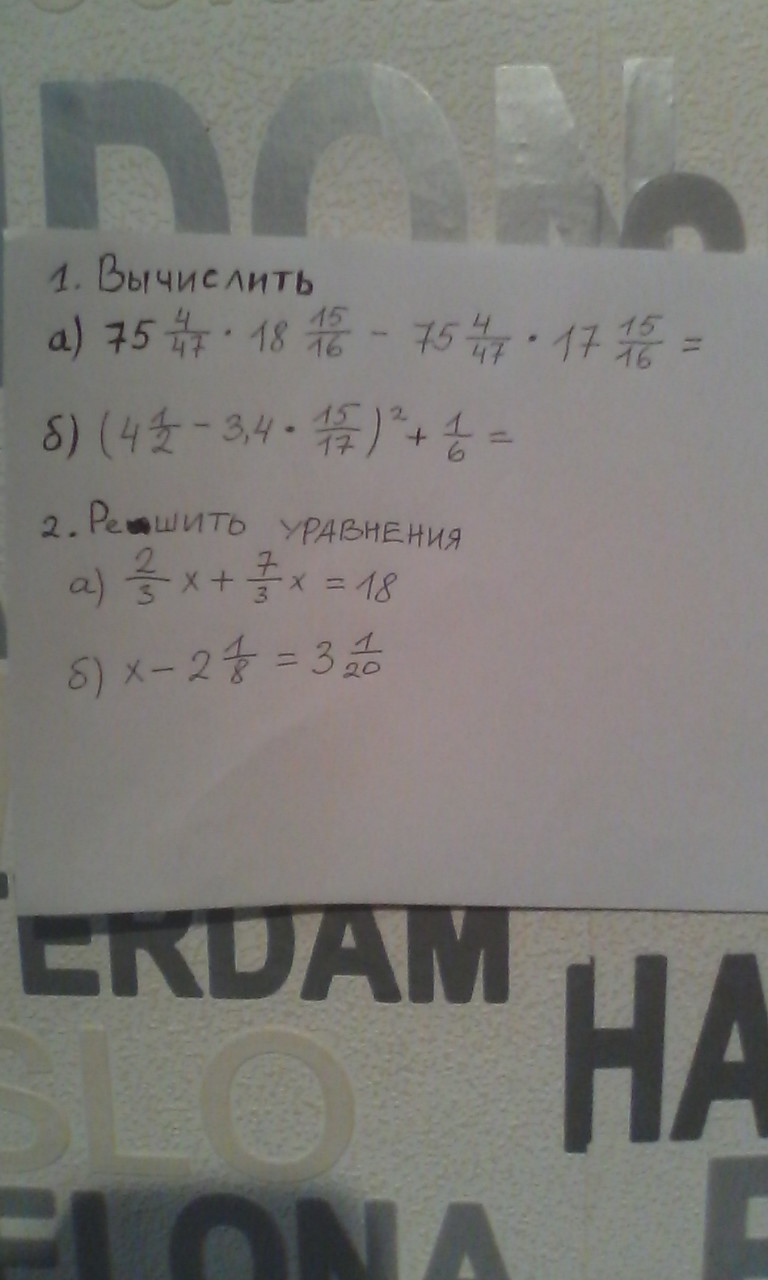 DON
1. Вычислить
а) 75 4/47 · 18 15/16 - 75 4/47 · 17 15/16 =
б) (4 1/2 - 3,4 · 15/17)² + 1/6 =
2. Решить уравнения
а) 2/3 x + 7/3 x = 18
б) x - 2 1/8 = 3 1/20
TERDAM
HA
SLO
ELONA